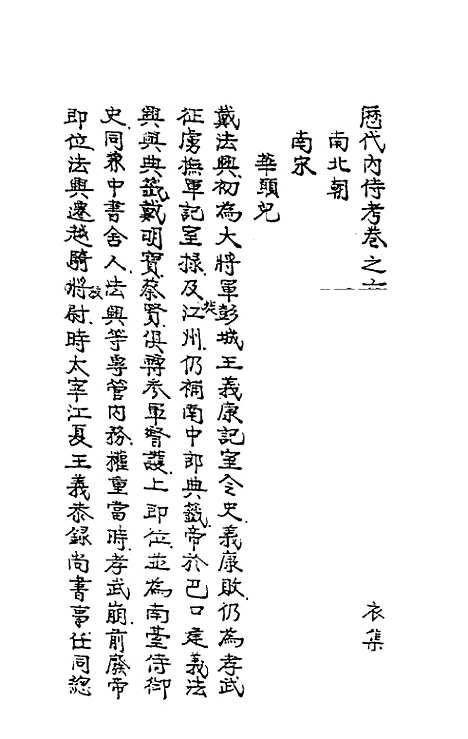 歷代內侍考卷之六　　衣集
南北朝
南宋
華願兒
戴法興初為大將軍彭城王義康記室令史義康敗仍為孝武
征虜撫軍記室掾及徙江州仍補南中郎典籤帝於巴口建義法
興與典籤戴明寶蔡賢俱轉參軍督護上即位並為南臺侍御
史同兼中書舍人法興等專管內務權重當時孝武崩前廢帝
即位法興遷越騎將校尉時太宰江夏王義恭錄尚書事任同總